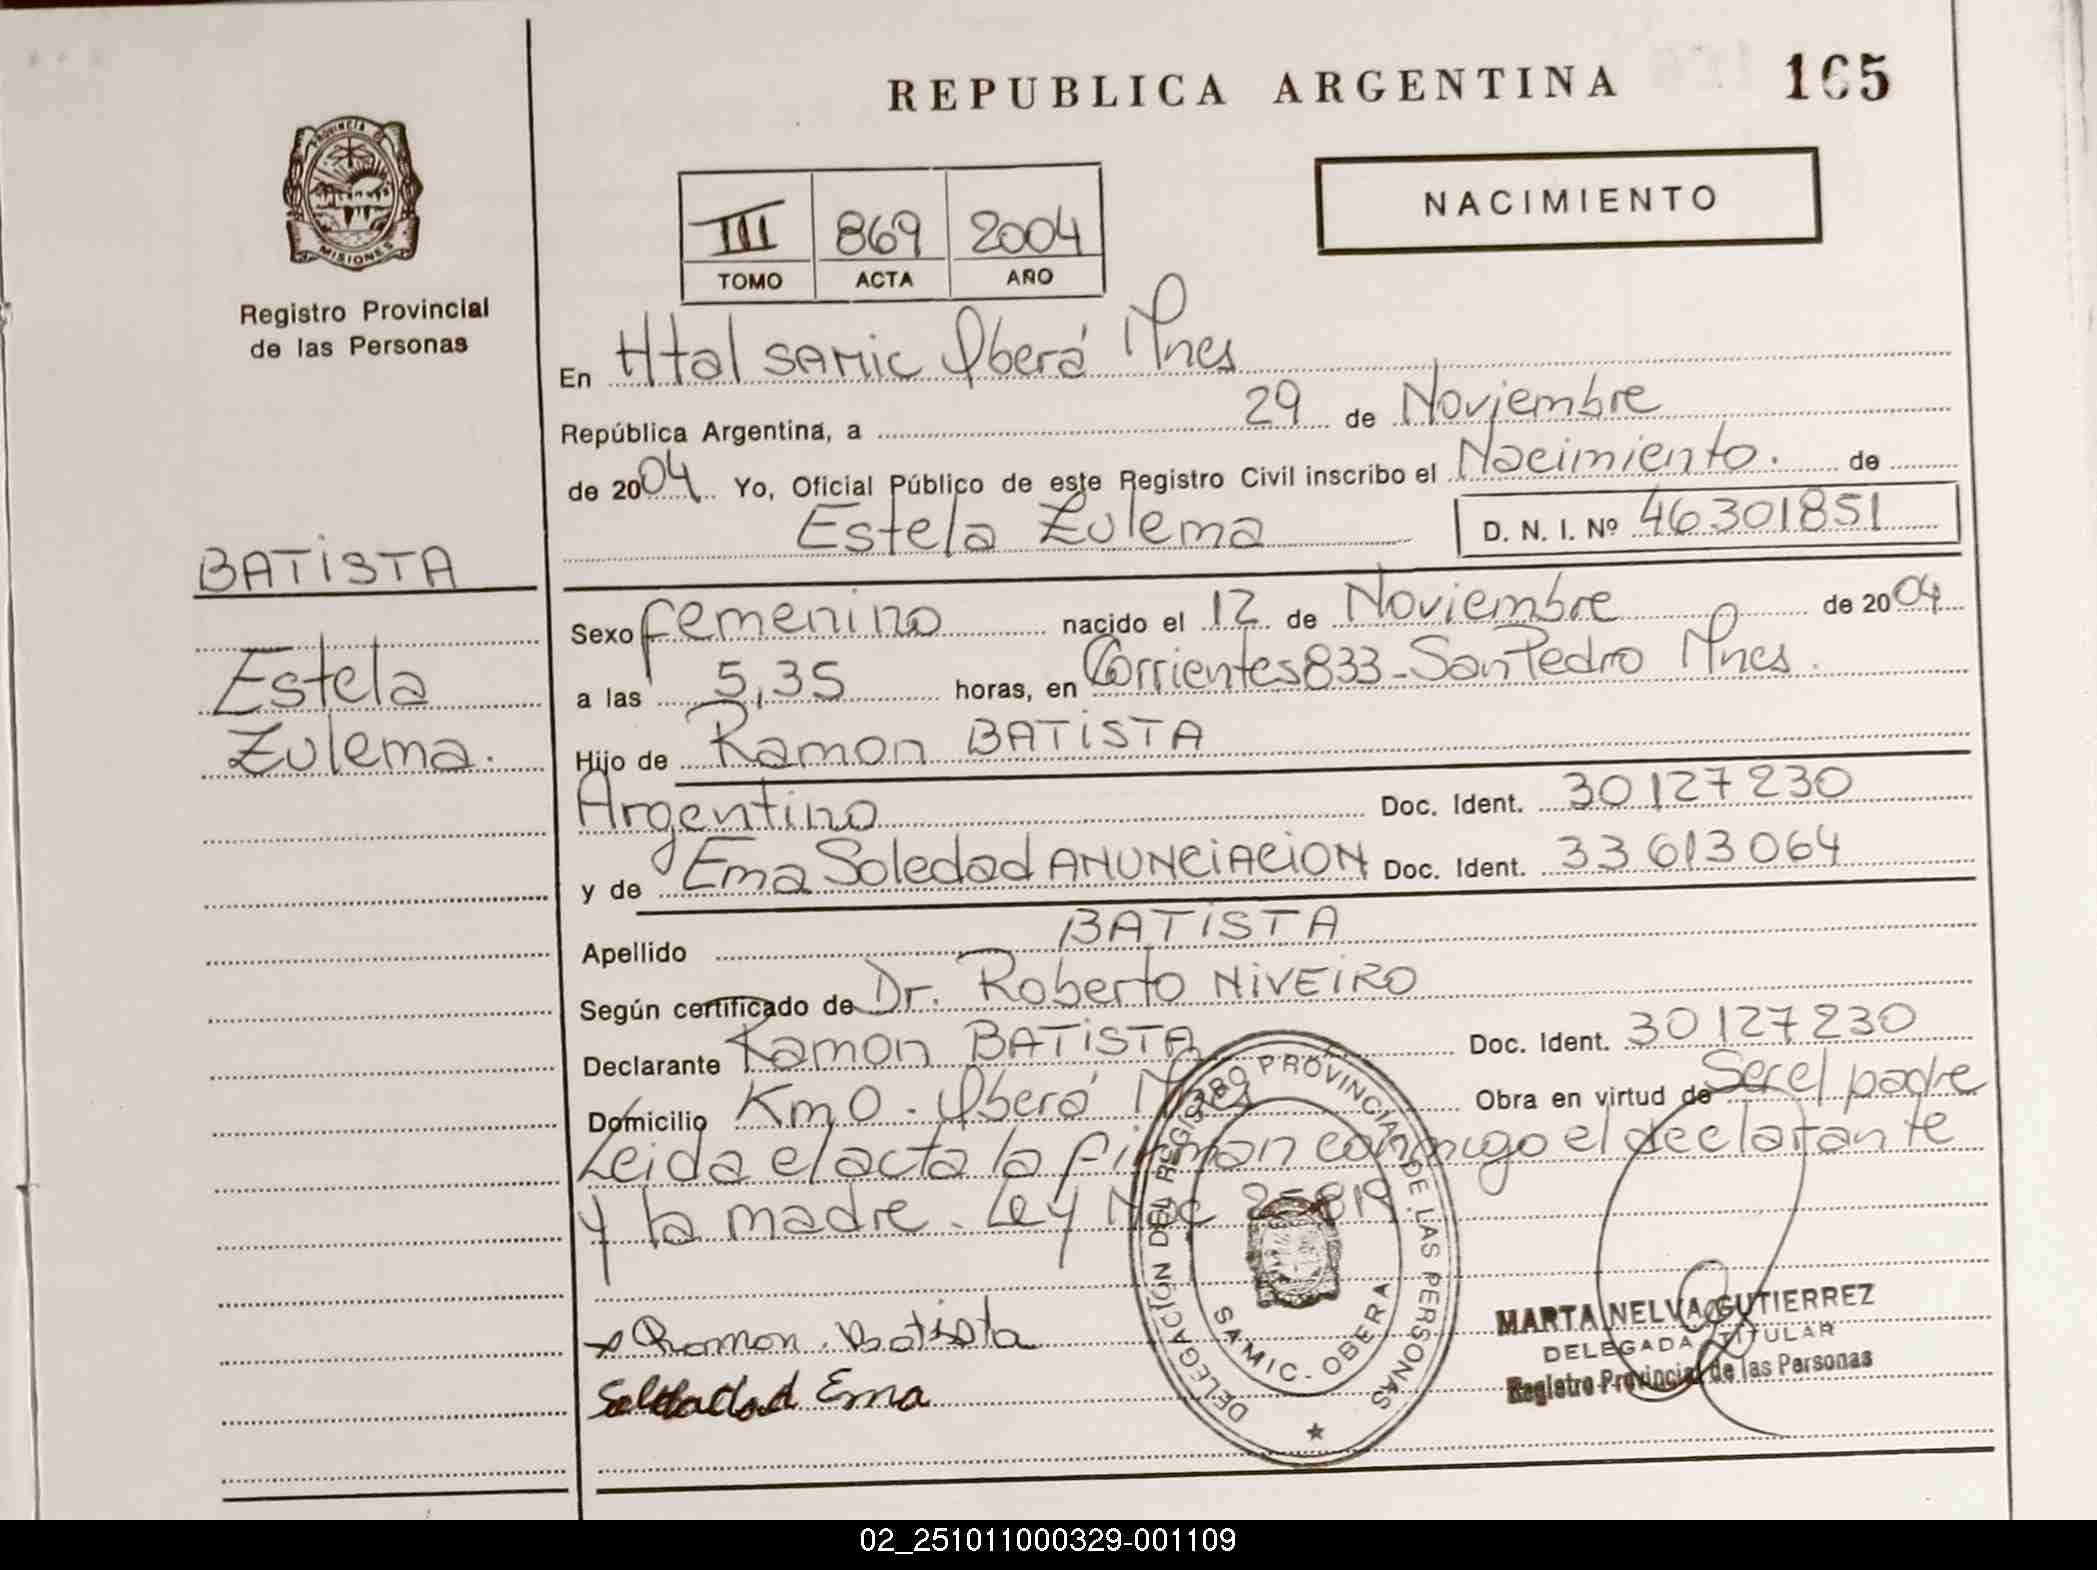 REPUBLICA ARGENTINA 165
PROVINCIA DE
MISIONES
Registro Provincial
de las Personas
NACIMIENTO
III 869 2004
TOMO ACTA AÑO
En Htal SAMIC Oberá Mnes
República Argentina, a 29 de Noviembre
de 2004 Yo, Oficial Público de este Registro Civil inscribo el Nacimiento. de
Estela Zulema D. N. I. Nº 46301851
BATISTA
Estela
Zulema.
Sexo femenino nacido el 12 de Noviembre de 2004
a las 5,35 horas, en Corrientes 833 - San Pedro Mnes.
Hijo de Ramon BATISTA
Argentino Doc. Ident. 30127230
y de Ema Soledad ANUNCIACION Doc. Ident. 33613064
Apellido BATISTA
Según certificado de Dr. Roberto NIVEIRO
Declarante Ramon BATISTA Doc. Ident. 30127230
Domicilio Km 0 - Oberá Mnes Obra en virtud de Ser el padre
Leida el acta la firman conmigo el declarante
y la madre. Ley Nac 25819
Ramon Batista
Soledad Ema
DELEGACIÓN DEL REGISTRO PROVINCIAL DE LAS PERSONAS
SAMIC - OBERA
MARTA NELVA GUTIERREZ
DELEGADA TITULAR
Registro Provincial de las Personas
02_251011000329-001109